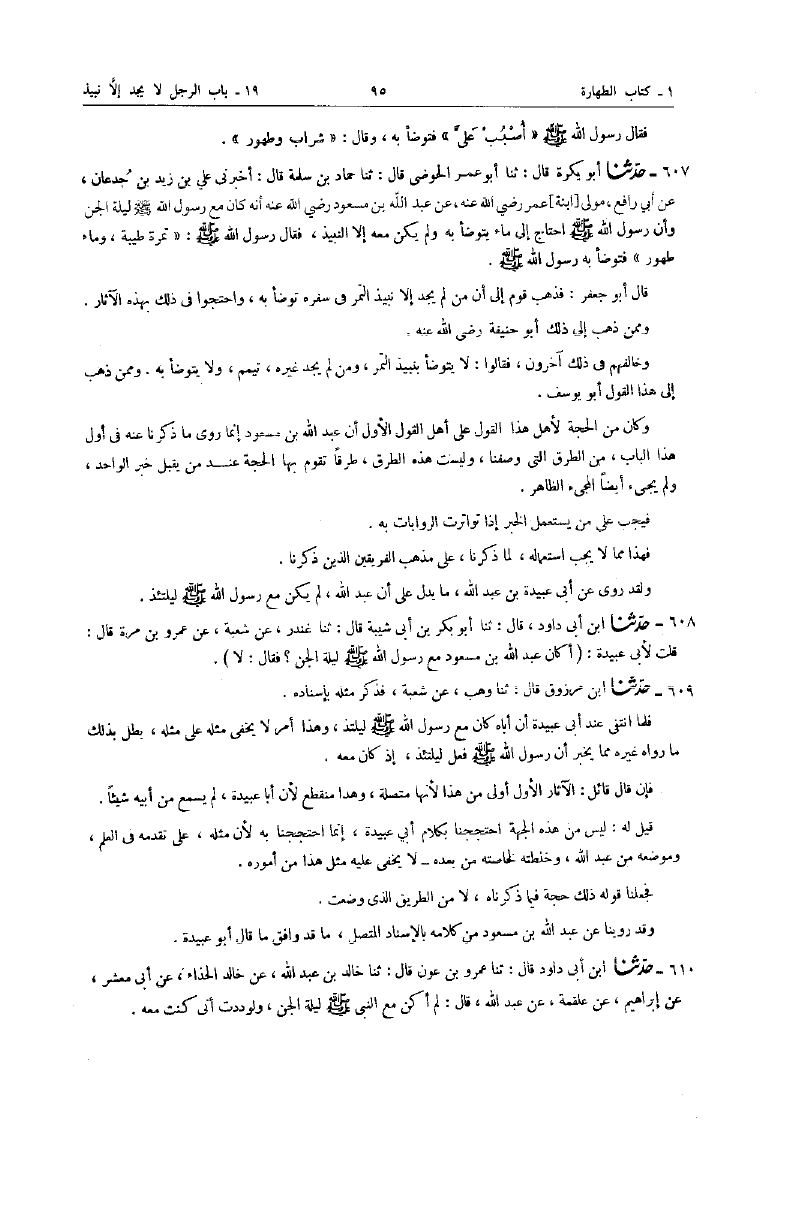 ١ ـ كتاب الطهارة ٩٥ ١٩ ـ باب الرجل لا يجد إلَّا نبيذ
فقال رسول الله ﷺ « أُصْبُبْ عَلَيَّ » فتوضأ به ، وقال : « شراب وطهور » .
٦٠٧ ـ حدّثنا أبو بكرة قال : ثنا أبو عمر الحوضى قال : ثنا حماد بن سلمة قال : أخبرنى علي بن زيد بن جُدعان ،
عن أبي رافع ، مولى [ابنة] عمر رضي الله عنه ، عن عبد الله بن مسعود رضي الله عنه أنه كان مع رسول الله ﷺ ليلة الجن
وأن رسول الله ﷺ احتاج إلى ماء يتوضأ به ولم يكن معه إلا النبيذ ، فقال رسول الله ﷺ : « تمرة طيبة ، وماء
طهور » فتوضأ به رسول الله ﷺ .
قال أبو جعفر : فذهب قوم إلى أن من لم يجد إلا نبيذ التمر فى سفره توضأ به ، واحتجوا فى ذلك بهذه الآثار .
وممن ذهب إلى ذلك أبو حنيفة رضي الله عنه .
وخالفهم فى ذلك آخرون ، فقالوا : لا يتوضأ بنبيذ التمر ، ومن لم يجد غيره ، تيمم ، ولا يتوضأ به . وممن ذهب
إلى هذا القول أبو يوسف .
وكان من الحجة لأهل هذا القول على أهل القول الأول أن عبد الله بن مسعود إنما روى ما ذكرنا عنه فى أول
هذا الباب ، من الطرق التى وصفنا ، وليست هذه الطرق ، طرقاً تقوم بها الحجة عنـد من يقبل خبر الواحد ،
ولم يجىء أيضاً المجىء الظاهر .
فيجب على من يستعمل الخبر إذا تواترت الروايات به .
فهذا مما لا يجب استعماله ، لما ذكرنا ، على مذهب الفريقين الذين ذكرنا .
ولقد روى عن أبى عبيدة بن عبد الله ، ما يدل على أن عبد الله ، لم يكن مع رسول الله ﷺ ليلتئذ .
٦٠٨ ـ حدّثنا ابن أبى داود ، قال : ثنا أبو بكر بن أبى شيبة قال : ثنا غندر ، عن شعبة ، عن عمرو بن مرة قال :
قلت لأبى عبيدة : ( أكان عبد الله بن مسعود مع رسول الله ﷺ ليلة الجن ؟ فقال : لا ) .
٦٠٩ ـ حدّثنا ابن مرزوق قال : ثنا وهب ، عن شعبة ، فذكر مثله بإسناده .
فلما انتفى عند أبى عبيدة أن أباه كان مع رسول الله ﷺ ليلتئذ ، وهذا أمر لا يخفى مثله على مثله ، بطل بذلك
ما رواه غيره مما يخبر أن رسول الله ﷺ فعل ليلتئذ ، إذ كان معه .
فإن قال قائل : الآثار الأول أولى من هذا لأنها متصلة ، وهذا منقطع لأن أبا عبيدة ، لم يسمع من أبيه شيئاً .
قيل له : ليس من هذه الجهة احتججنا بكلام أبي عبيدة ، إنما احتججنا به لأن مثله ، على تقدمه فى العلم ،
وموضعه من عبد الله ، وخلطته لخاصته من بعده ـ لا يخفى عليه مثل هذا من أموره .
فجعلنا قوله ذلك حجة فيما ذكرناه ، لا من الطريق الذى وضعت .
وقد روينا عن عبد الله بن مسعود من كلامه بالإسناد المتصل ، ما قد وافق ما قال أبو عبيدة .
٦١٠ ـ حدّثنا ابن أبى داود قال : ثنا عمرو بن عون قال : ثنا خالد بن عبد الله ، عن خالد الحذاء ، عن أبى معشر ،
عن إبراهيم ، عن علقمة ، عن عبد الله ، قال : لم أكن مع النبى ﷺ ليلة الجن ، ولوددت أنى كنت معه .